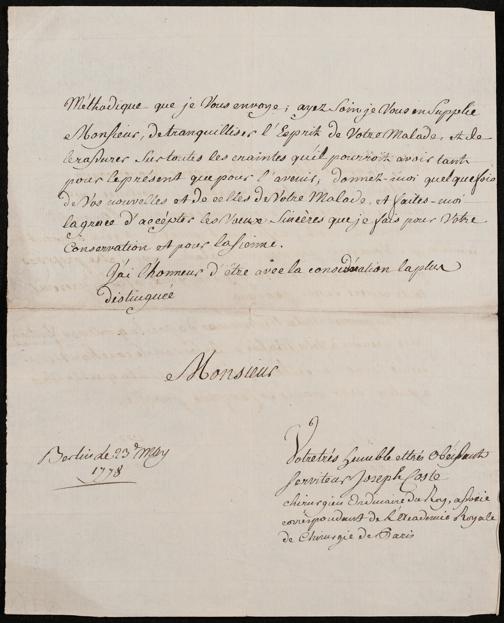 Méthodique que je Vous envoye; ayez Soin je Vous en Supplie
Monsieur, de tranquilliser l'Esprit de Votre Malade, et de
le rassurer Sur toutes les craintes qu'il pourroit avoir tant
pour le présent que pour l'avenir; donnez-moi quelque fois
de Vos nouvelles et de celles de Votre Malade, et faites-moi
la grace d'accepter les Vœux Sincères que je fais pour Votre
Conservation et pour la sienne.
J'ai l'honneur d'être avec la considération la plus
distinguée
Monsieur
Votre très humble et très Obéissant
serviteur Joseph Coste
chirurgien Ordinaire du Roy, associé
correspondant de l'Academie Royale
de Chirurgie de Paris
Berlin de 23e May
1778